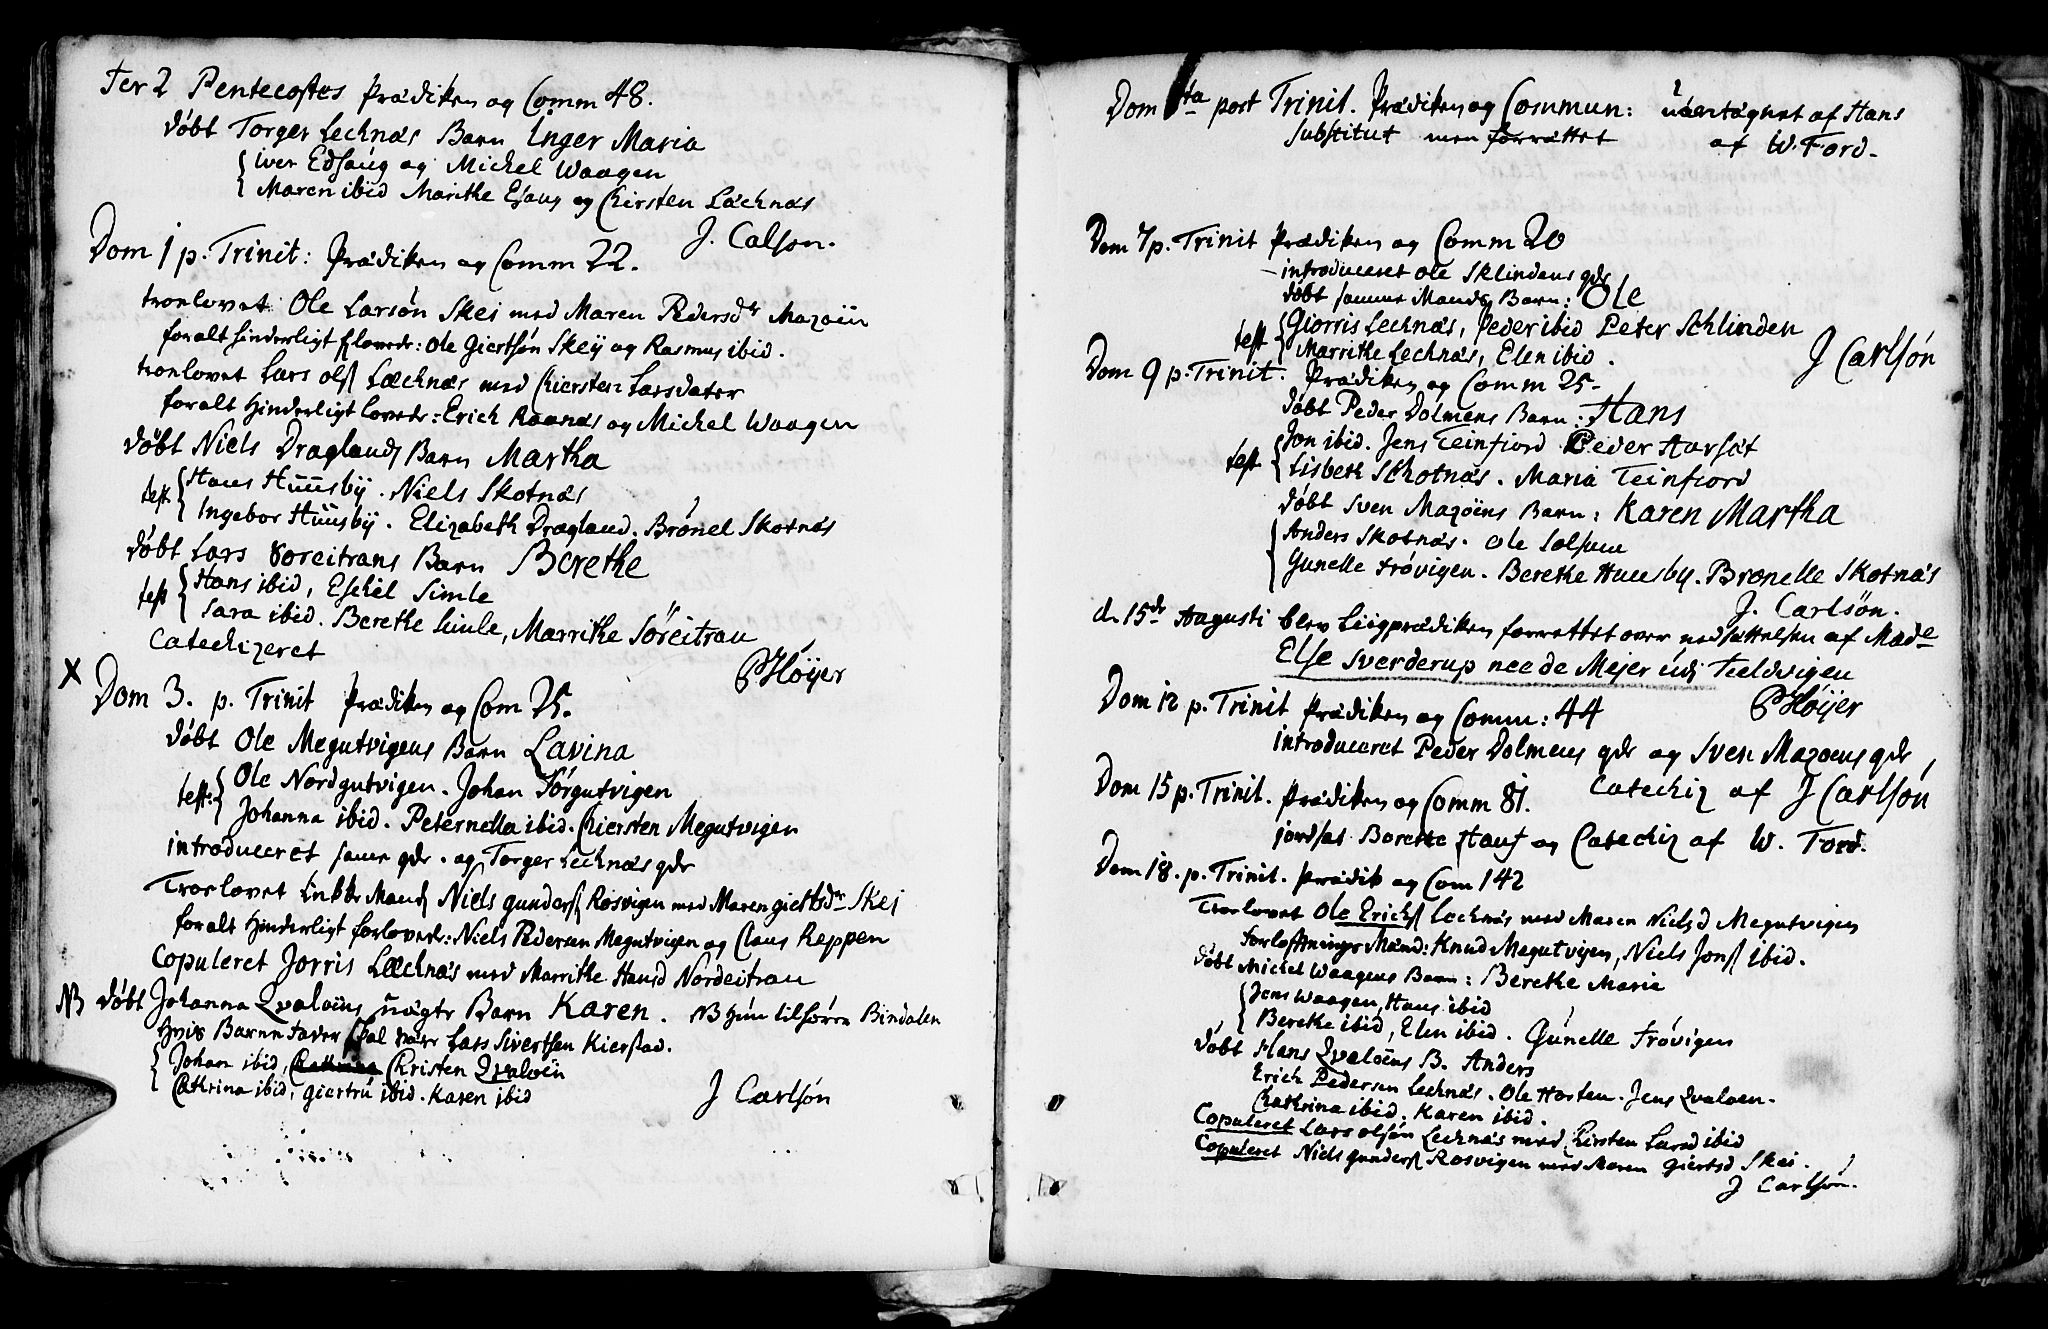 Fer 2 Pentecostes Prædiken og Comm 48.
døbt Torger Lechnæs Barn Inger Maria
iver Edsaug og Michel Waagen
Maren ibid Marithe Esaug og Chirsten Læchnæs
J. Calson.
Dom 1 p. Trinit: Prædiken og Comm 22.
troelovet Ole Larsøn Skei med Maren Pedersdr Mazøin
for alt hinderligt lovede: Ole Giertsøn Skeij og Rasmus ibid.
troelovet Lars Ols Læchnæs med Chiersten Larsdater
for alt Hinderligt lovede: Erich Raanæs og Michel Waagen
døbt Niels Draglands Barn Martha
test Hans Huusbÿ. Niels Skotnæs
Ingebor Huusbÿ. Elizabeth Dragland. Brønel Skotnæs
døbt Lars Soreitrans Barn Berethe
test Hans ibid, Eschil Simle
Sara ibid. Berethe Simle, Marrithe Søreitran
Catechizeret
PHöÿer
X Dom 3. p. Trinit Prædiken og Com 25.
døbt Ole Megutvigens Barn Lavina
test: Ole Nordgutvigen. Johan Sørgutvigen
Johanna ibid. Peternella ibid. Chiersten Megutvigen
introduceret samme qde. og Torger Lechnæs qde
Troelovet Enkke Mand Niels gunders Rosvigen med Maren giertsdr Skei
for alt Hinderligt forlovede: Niels Pedersen Megutvigen og Claus Reppen
Copuleret Jorris Læchnæs med Marrithe Hansd Nordeitran
NB døbt Johanna Qvaløens uægte Barn Karen. NB Hun tilhører Bindalen
Hvis Barne fader skal være Lars Sivertsen Kierstad.
Johan ibid, Christen Qvaløen
Cathrina ibid, giertru ibid. Karen ibid
J Carlsøn
Dom 6ta post Trinit. Prædiken og Commun: af Hans
Substitut men forrættet af W. Ford.
Dom 7 p. Trinit Prædiken og Comm 20
introduceret Ole Sklindens qde
døbt samme Mands Barn: Ole
test Giorris Lechnæs, Peder ibid Peter Schlinden
Marrithe Lechnæs, Elen ibid.
J Carlsøn
Dom 9 p. Trinit. Prædiken og Comm 25.
døbt Peder Dolmens Barn: Hans
test Jon ibid. Jens Teinfiord Peder Harsæt
Lisbeth Schotnæs. Maria Teinfiord
døbt Sven Mazøins Barn: Karen Martha
Anders Skotnæs. Ole Solsem
Gunelle Frøvigen. Berethe Huusby. Brønelle Skotnæs
J. Carlsøn.
d. 15de Augusti blev Liigprædiken forrettet over nedsættelsen af Made
Else Sverderup née de Mejer udi Teeldvigen
PHöÿer
Dom 12 p. Trinit Prædiken og Comm: 44
introduceret Peder Dolmens qde og Sven Mazoens qde,
Catechiz af J Carlsøn
Dom 15 p. Trinit. Prædiken og Comm 81.
jordfæst Berethe Haus og Catechiz af W. Ford.
Dom 18. p. Trinit. Prædik og Com 142
Troelovet Ole Erichs Lechnæs med Maren Nielsd Megutvigen
forloftnings Mænd: Knud Megutvigen, Niels Jons ibid.
døbt Michel Waagens Barn: Berethe Maria
Jens Waagen, Hans ibid
Berethe ibid, Elen ibid. Gunelle Frøvigen
døbt Hans Qvaløens B. Anders
Erich Pedersen Lechnæs. Ole Horten. Jens Qvaløen.
Chathrina ibid. Karen ibid.
Copuleret Lars Olsøn Lechnæs med Kirsten Larsd ibid
Copuleret Niels gunders Rosvigen med Maren Giertsd Skei.
J Carlsøn.